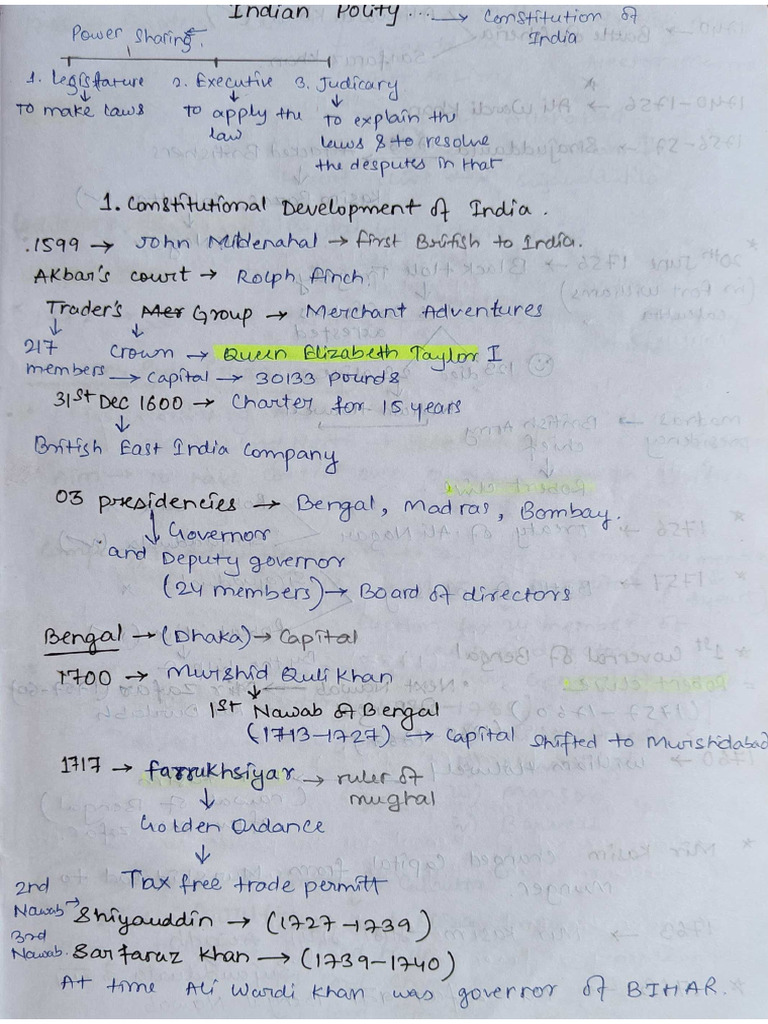 Indian Polity.... → Constitution of
India
Power Sharing.
1. Legislature 2. Executive 3. Judicary
To make laws To apply the To explain the
law laws & to resolve
the desputes in that
1. Constitutional Development of India.
.1599 → John Mildenahal → first British to India.
Akbar's court → Rolph finch
Trader's Group → Merchant Adventures
217 Crown → Queen Elizabeth Taylor I
members → Capital → 30133 pounds
31st Dec 1600 → Charter for 15 years
British East India Company
03 presidencies → Bengal, Madras, Bombay.
Governor
and Deputy governor
(24 members) → Board of directors
Bengal → (Dhaka) → Capital
1700 → Murshid Quli Khan
1st Nawab of Bengal
(1713-1727) → Capital shifted to Murishidabad
1717 → farrukhsiyar → ruler of
mughal
Golden Ordance
Tax free trade permitt
2nd
Nawab → Shiyauddin → (1727-1739)
3rd
Nawab. Sarfaruz Khan → (1739-1740)
At time Ali Wardi Khan was governor of BIHAR.